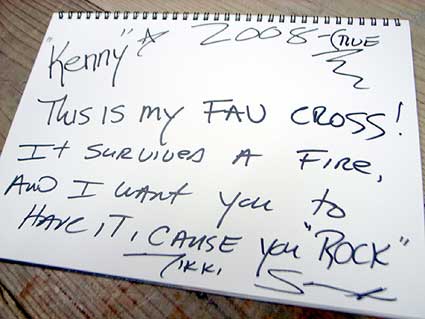 "Kenny" ☆ 2008-CRUE
THIS IS MY FAV CROSS!
It SURVIVED A FIRE,
AND I WANT YOU to
HAVE IT, CAUSE YOU "ROCK"
NIKKI SIXX